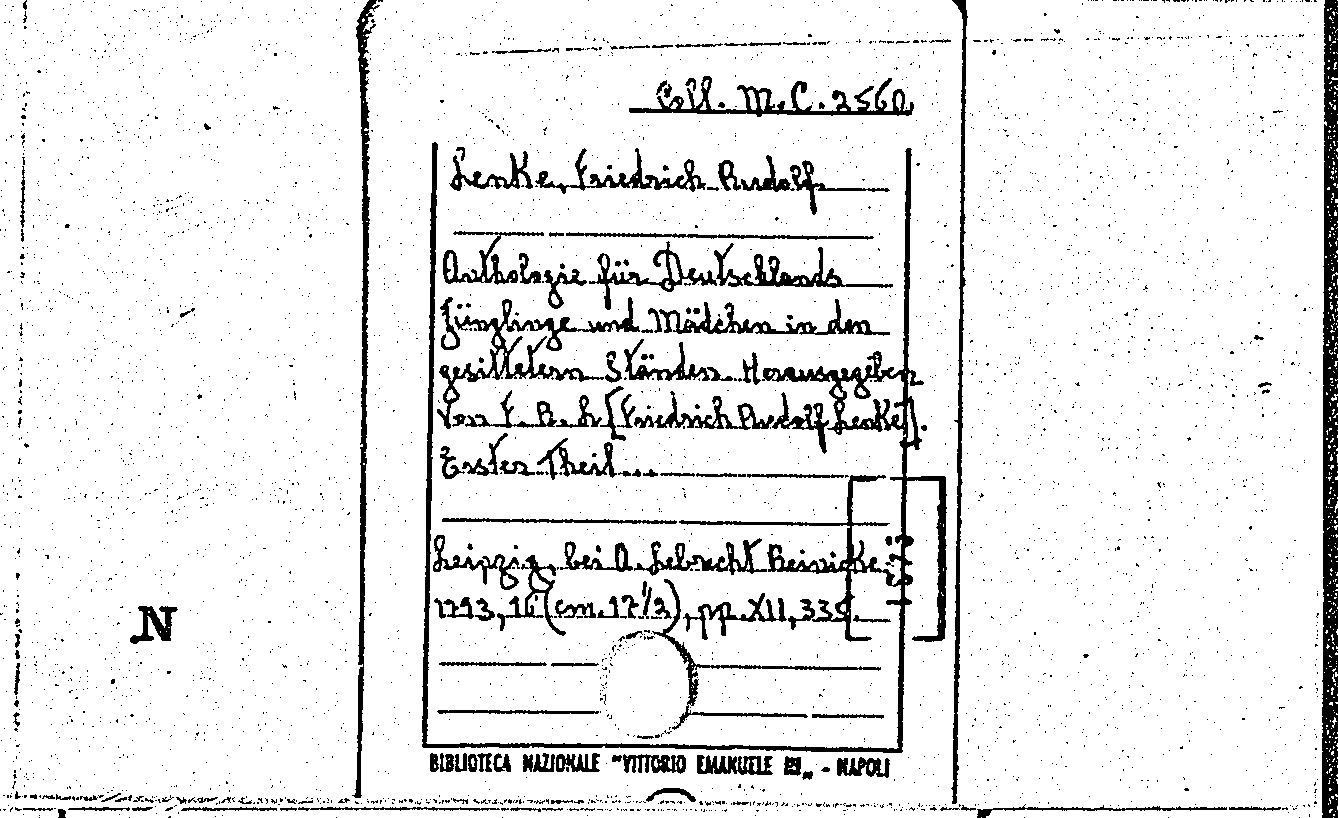 Coll. M.C. 2560
Lenke, Friedrich Rudolf
Anthologie für Deutschlands
Jünglinge und Mädchen in den
gesittetern Ständen. Herausgegeben
von F. R. L. [Friedrich Rudolf Lenke].
Erster Theil...
Leipzig, bei A. Lebrecht Reinicke,
1793, 16 (cm. 17 1/2), pp. XII, 335.
N
BIBLIOTECA NAZIONALE "VITTORIO EMANUELE III„ - NAPOLI